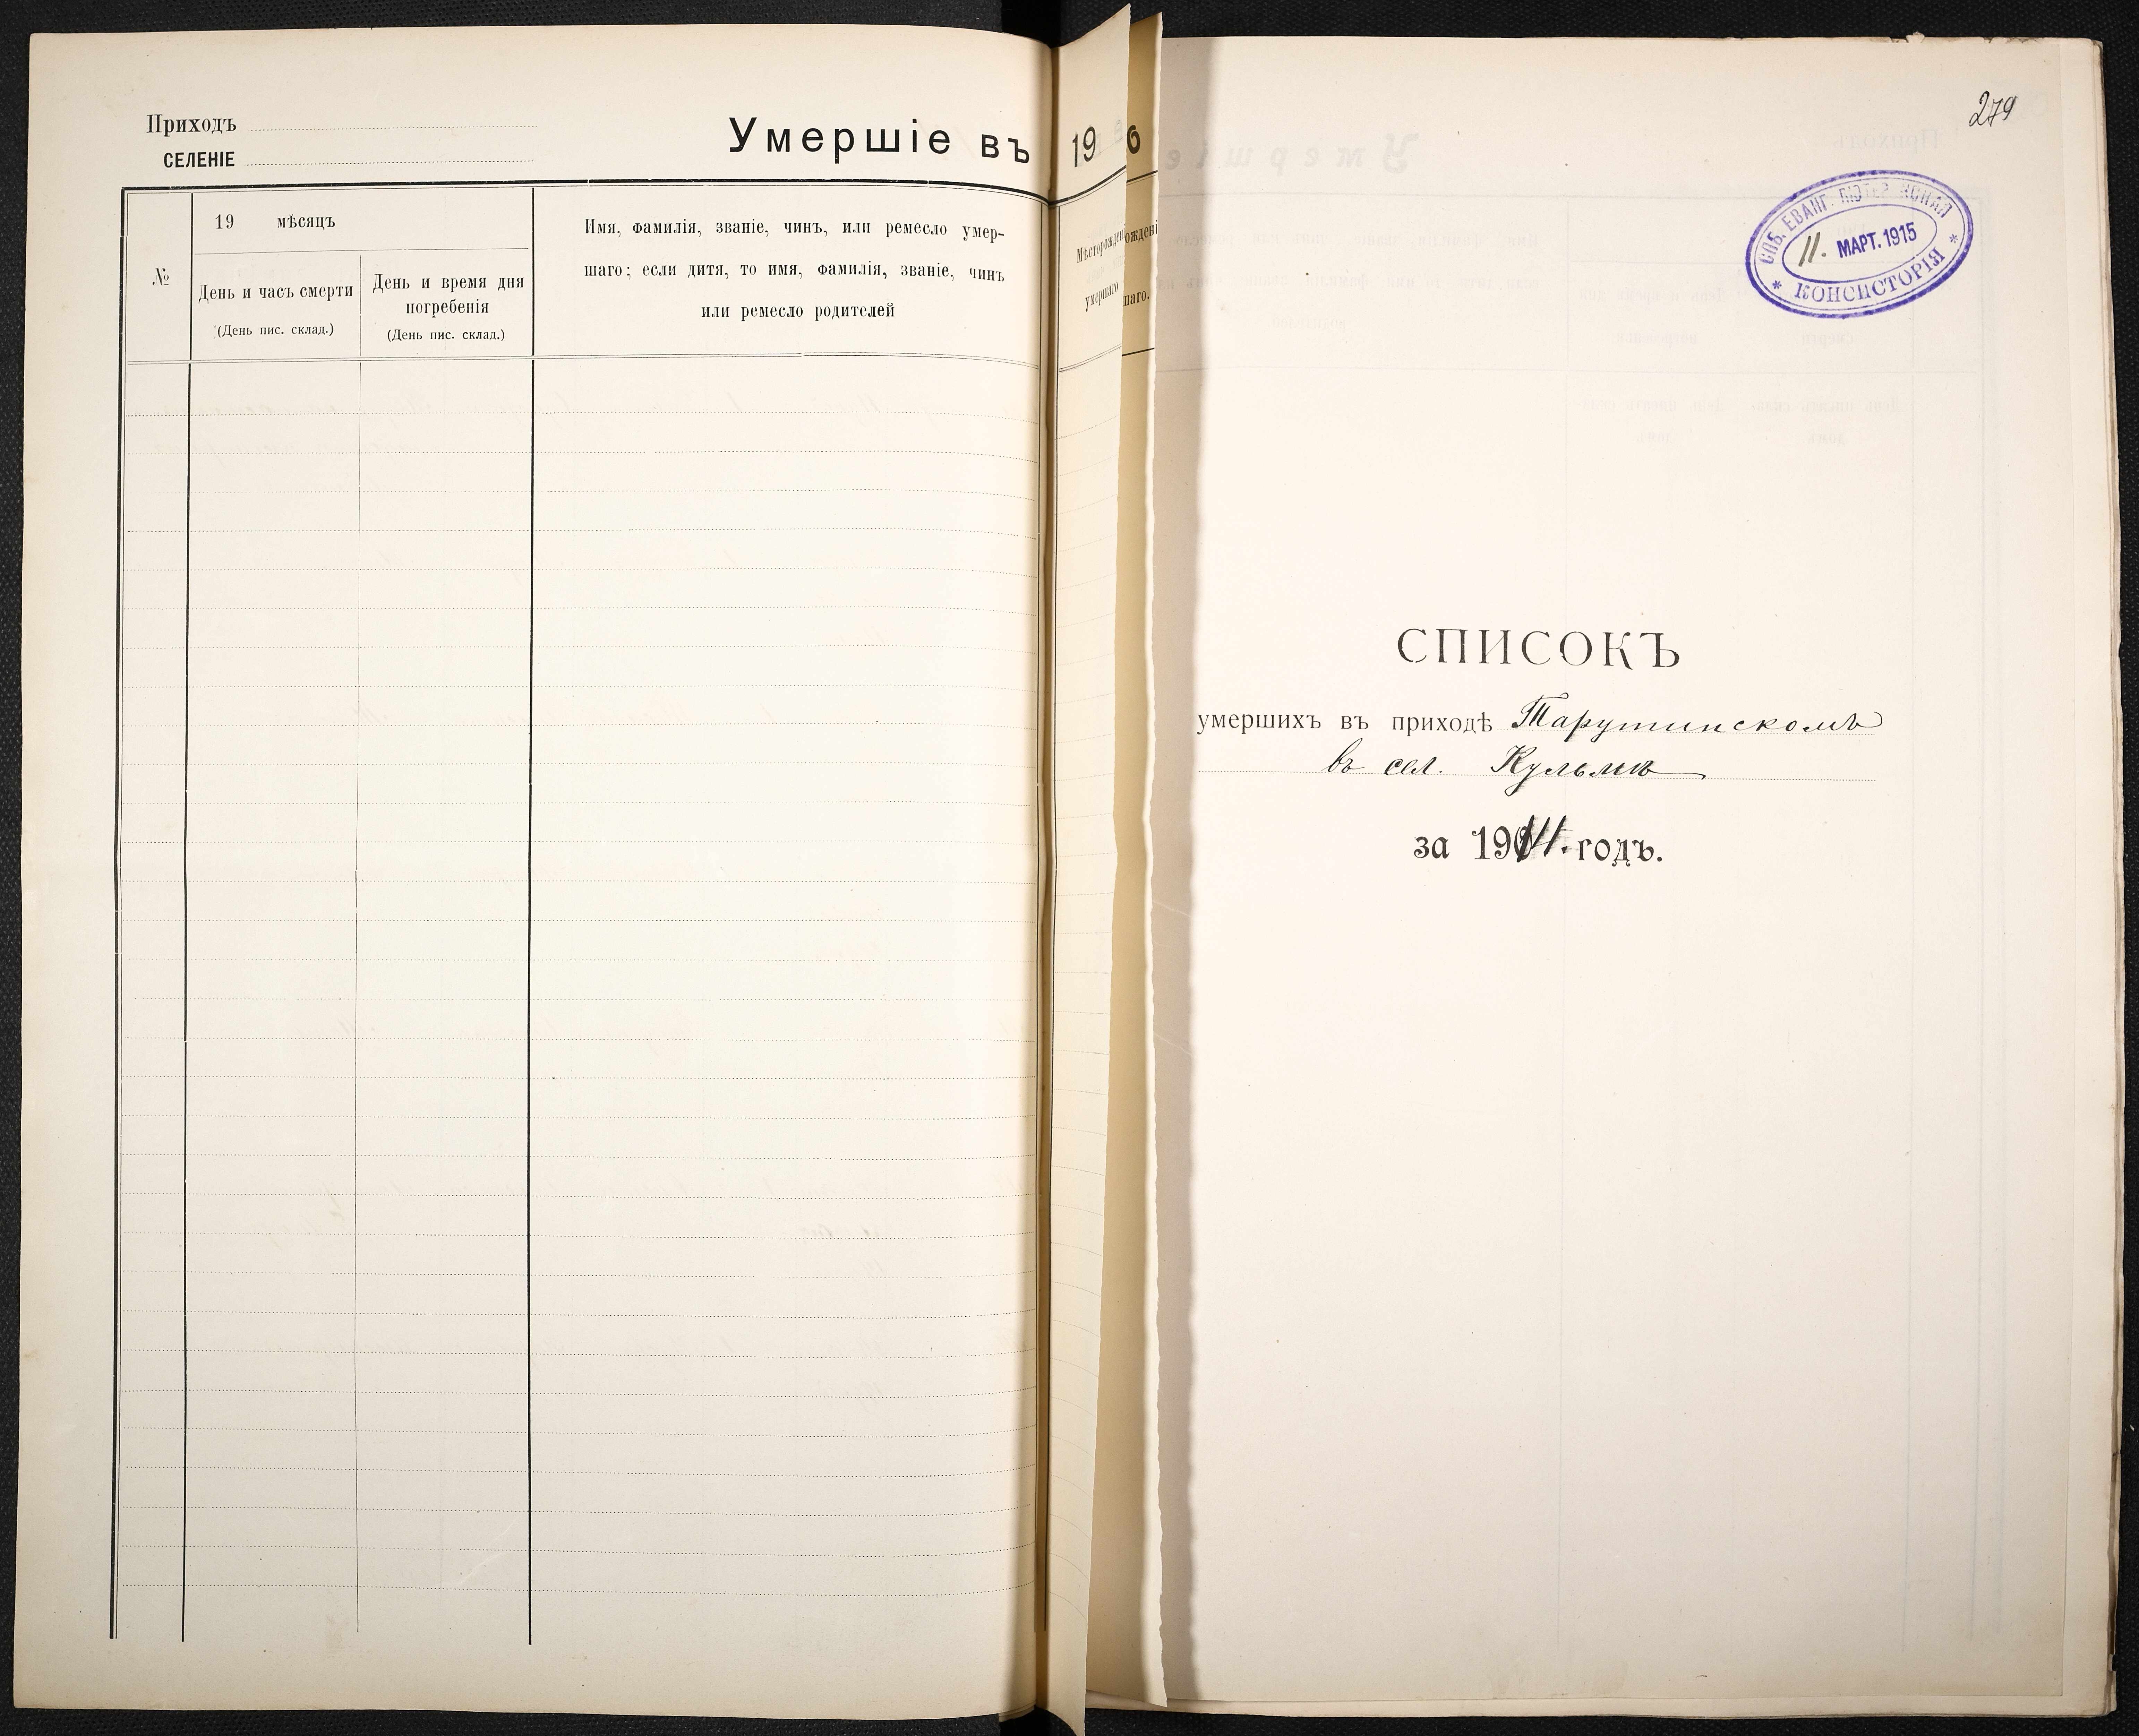 Приходъ
СЕЛЕНІЕ
Умершіе въ 19
6
№
19 мѣсяцъ
День и часъ смерти
(День пис. склад.)
День и время дня
погребенія
(День пис. склад.)
Имя, фамилія, званіе, чинъ, или ремесло умер-
шаго; если дитя, то имя, фамилія, званіе, чинъ
или ремесло родителей
Мѣсторожден
умершаго
ождені
шаго.
279
СПБ. ЕВАНГ. ЛЮТЕРАНСКАЯ
11. МАРТ. 1915
* КОНСИСТОРІЯ *
СПИСОКЪ
умершихъ въ приходѣ Тарутинскомъ
въ сел. Кульмѣ
за 1914. годъ.